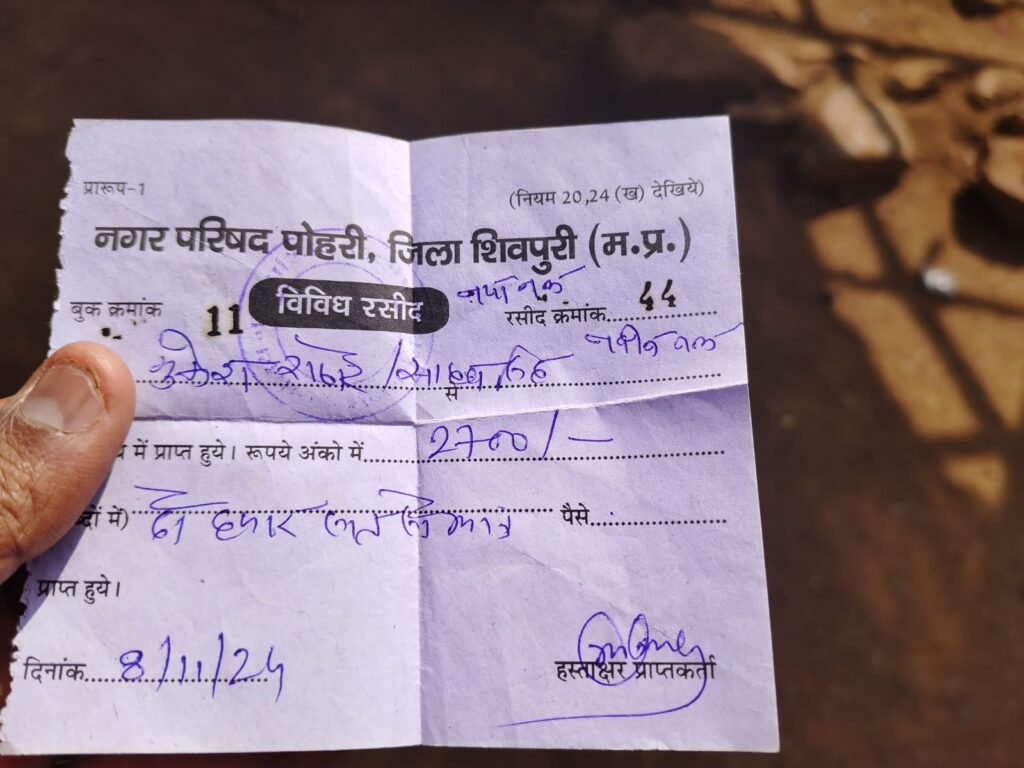 प्रारूप-1 (नियम 20,24 (ख) देखिये)
नगर परिषद पोहरी, जिला शिवपुरी (म.प्र.)
बुक क्रमांक 11 विविध रसीद रसीद क्रमांक 44
से
में प्राप्त हुये। रूपये अंको में 2700/-
दो हजार सात सौ मात्र पैसे
प्राप्त हुये।
दिनांक 8/11/24 हस्ताक्षर प्राप्तकर्ता